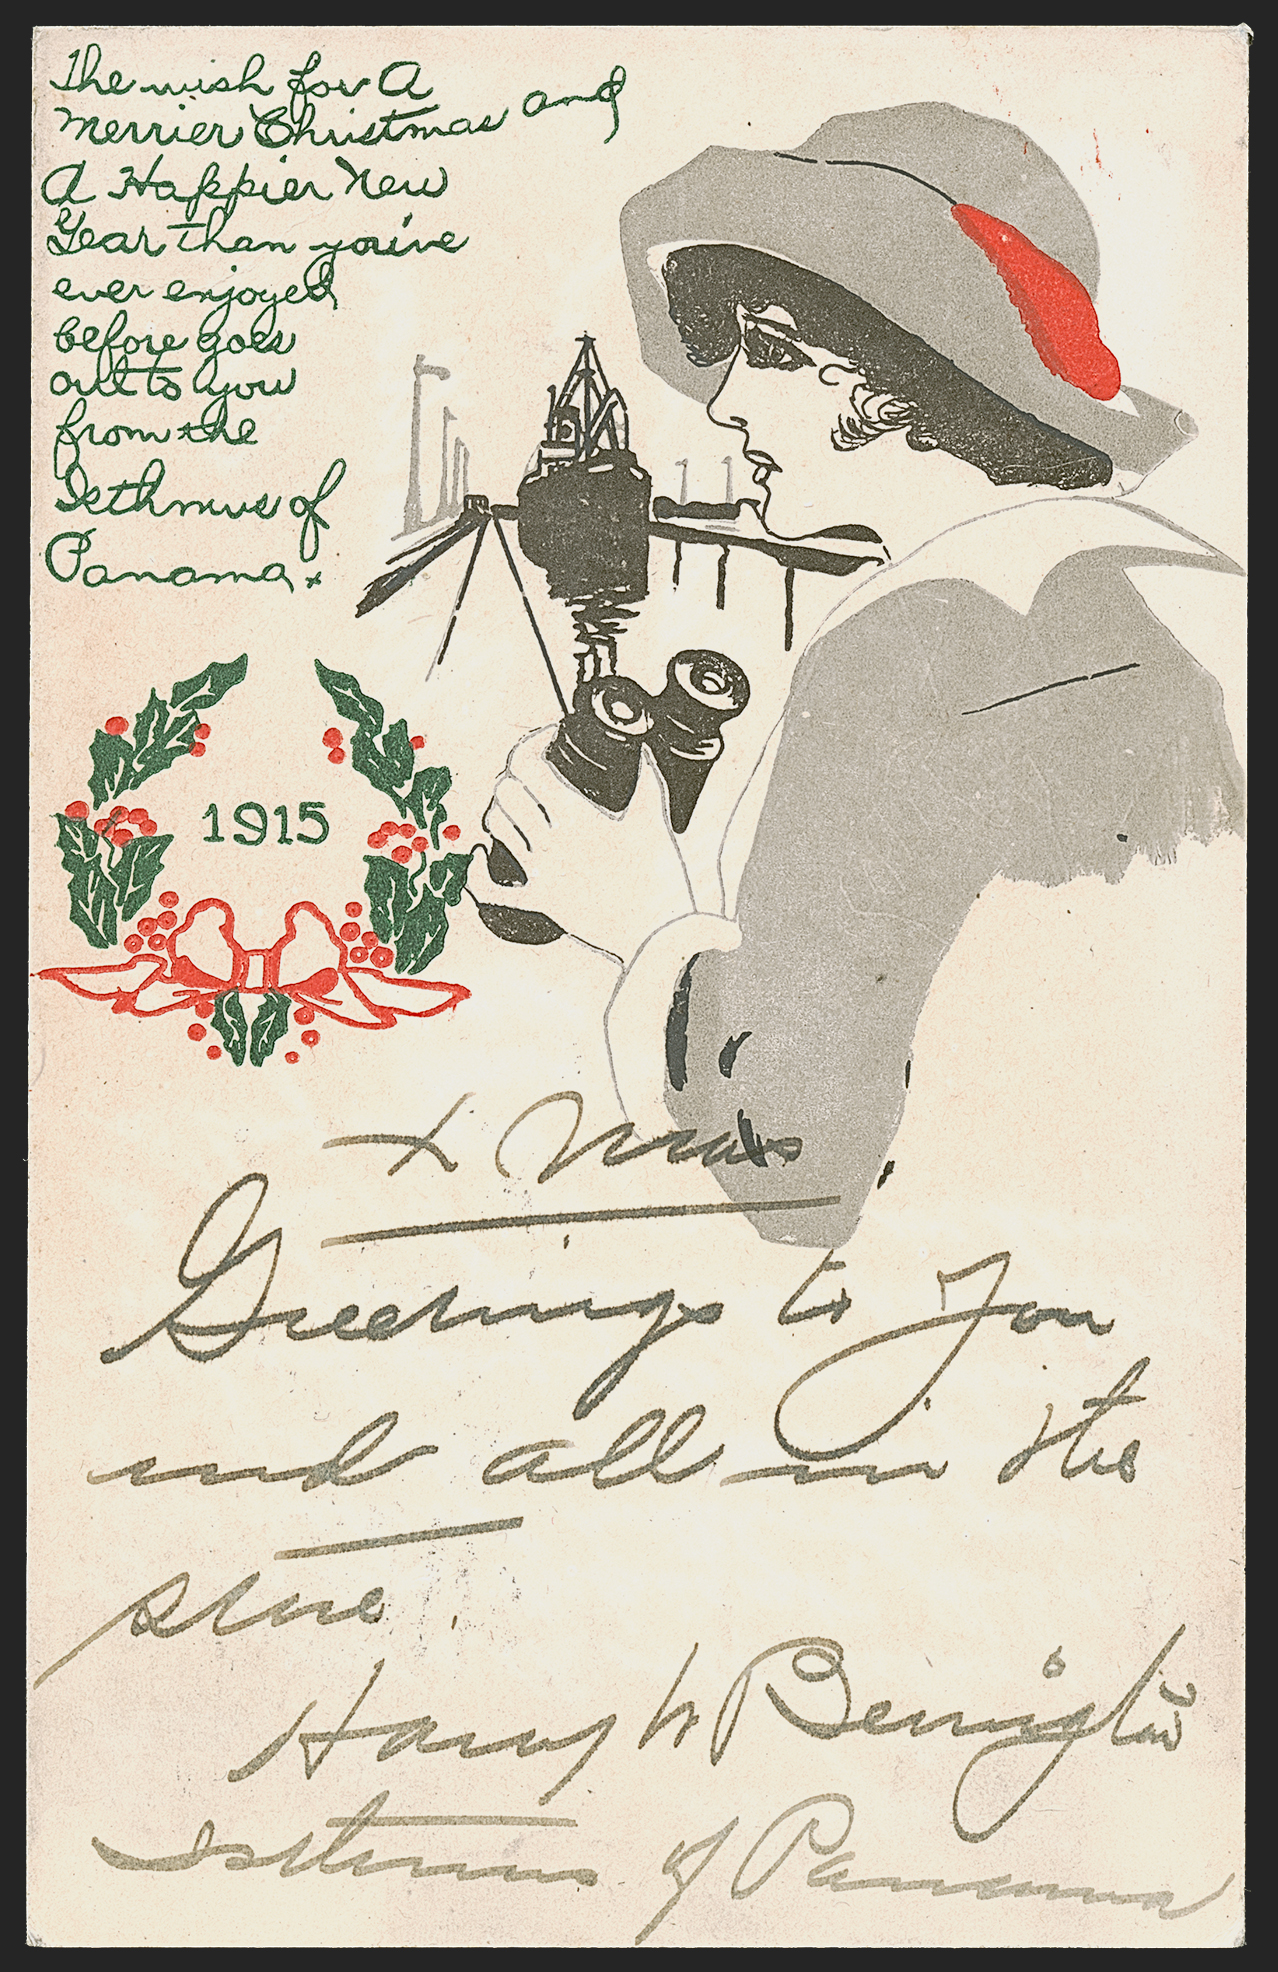 The wish for A
Merrier Christmas and
A Happier New
Year than you've
ever enjoyed
before goes
out to you
from the
Isthmus of
Panama.
1915
X Mas
Greetings to you
and all in the
Harry W Berrigton
Isthmus of Panama